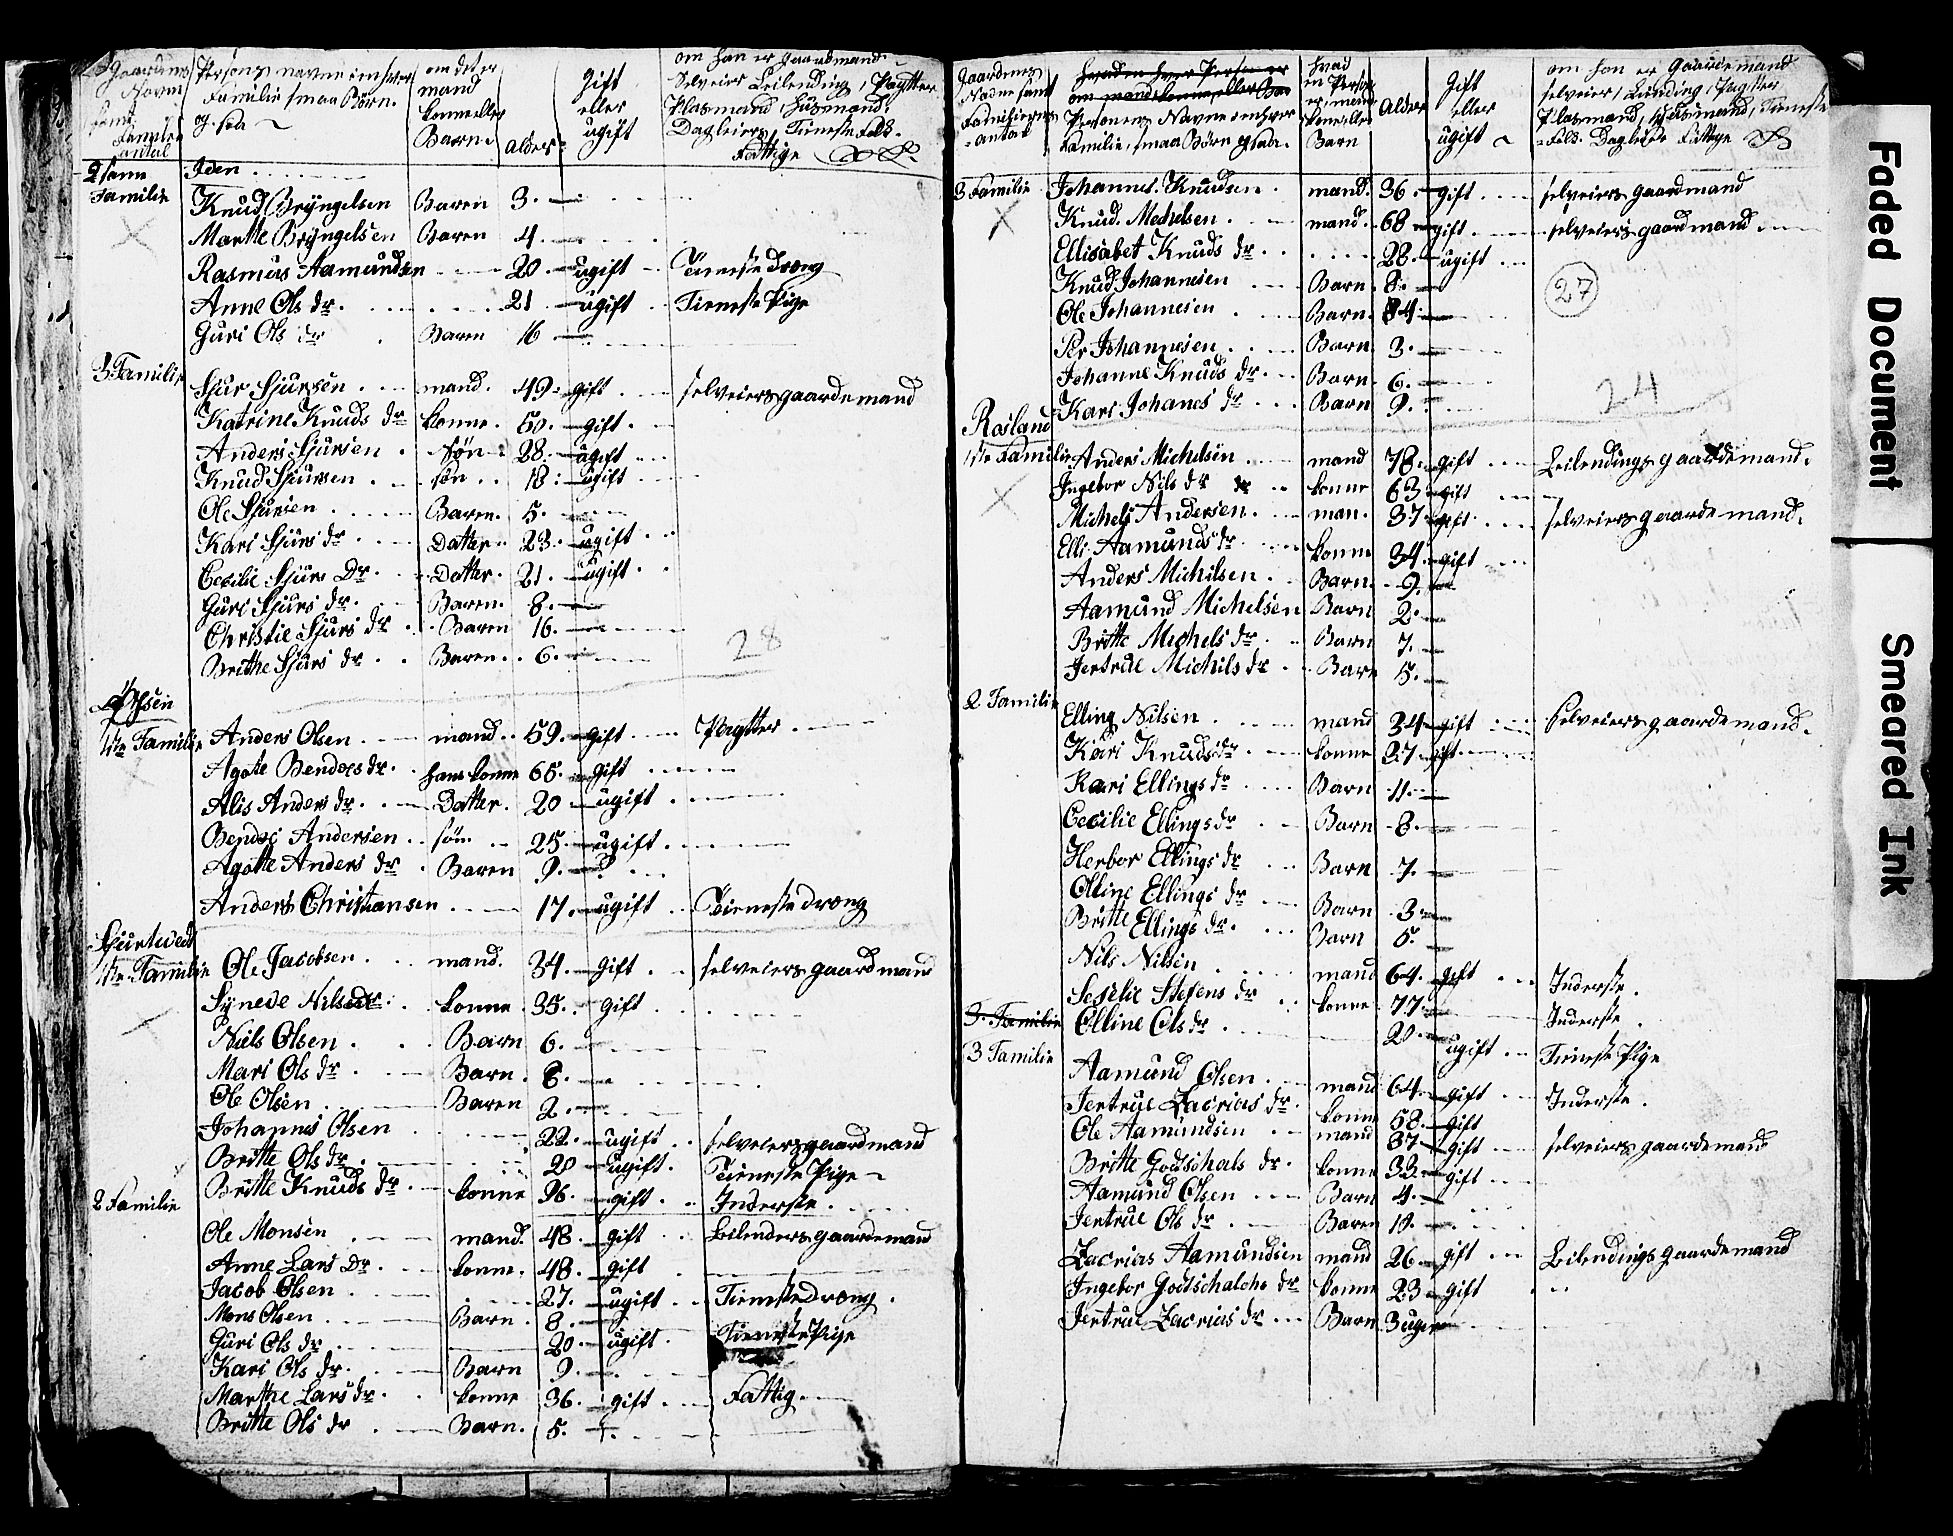 Gaardens Persons navne i enhver om det er Gift om han er Gaardmand
Navn Familie smaa Børn mand eller Selveier Leilending, Pagtter
og saa konneeller ugift Plasmand, Husmand
Familie Barn. alder Dagleier, Tieneste Folk.
antal Fattige
2 samme Iden
Familie Knud Bryngelsen Baren 3.
Marthe Bryngelsen Baren 4.
Rasmus Aamundsen 20. ugift Tieneste Dreng
Anne Ols dr. 21 ugift Tieneste Pige
Guri Ols dr Baren 16
3 Familie Sjur Sjursen mand. 49. gift selveiers gaardemand
Katrine Knuds dr konne. 50. gift.
Anders Sjursen søn 28. ugift
Knud Sjursen søn 18. ugift
Ole Sjursen Baren. 5.
Kari Sjurs dr Datter 23. ugift
Cecilie Sjurs Dr. Datter. 21. ugift.
Guri Sjurs dr. Baren. 8.
Christie Sjurs dr Baren 16.
Brithe Sjurs dr Baren. 6.
28
1ste Familie Anders Olsen mand. 59. gift Pagtter
Agate Bendcs dr. hans konne 65. gift
Alis Anders dr. Datter. 20 ugift
Bendic Andersen søn 25. ugift.
Agatte Anders dr. Baren 9.
Anders Christiansen 17. ugift Tieneste dreng
Sjurtwedt
1ste Familie Ole Jacobsen mand. 34. gift selveiers gaardmand
Syneve Nilsdr. konne 35. gift
Niels Olsen Barn 6.
Mari Ols dr Barn. 8.
Ole Olsen Baren 2.
Johannes Olsen 22. ugift selveiers gaardmand
Britte Ols dr. 20 ugift. Tieneste Pige
Britte Knuds dr konne 96. gift Inderste.
2 Familie
Ole Monsen mand. 48. gift Leilenders gaardemand
Anne Lars Dr. konne. 48. gift
Jacob Olsen 27. ugift Tieneste Dreng.
Mons Olsen Barn. 8.
Guri Ols dr. 20 ugift. Tieneste Pige
Kari Ols dr. Barn 9
Marthe Lars dr. konne 36. gift Fattig.
Britte Ols dr Barn. 5.
Gaardenes hvad Gift om han er Gaardemand
Navne samt en Person Alder eller selveier, Leilending, Pagtter
Familiernes Personens Navne i enhver er, mand ugift Plasmand, Husmand, Tieneste
antal Familie, smaa Børn og saa. Barn Folk. Dagleier Fattige
3 Familie Johannes Knudsen mand. 36. gift selveiers gaardmand
Knud Mechelsen mand. 68 gift selveiers gaardmand
Ellisabet Knuds dr 28. ugift
27
Knud Johannesen Barn 8.
Ole Johannesen Barn.
Per Johannesen Barn. 3.
Johanne Knuds dr. Barn. 6.
24
Kari Johanes dr Barn 9.
Rosland
1ste Familie Anders Michelsen mand 78. gift Leilendings gaardemand.
Ingebor Nils dr konne 63 gift
Michels Andersen man. 37 gift selveiers gaardemand.
Elli Aamunds dr konne 34. gift
Anders Michilsen Barn. 9.
Aamund Michelsen Barn 2.
Britte Michels dr. Barn 7.
Jertrue Michils dr Barn 5.
2 Familie
Elling Nilsen mand 34 gift Selveiers gaardemand.
Kari Knuds dr. konne 27 gift
Kari Ellings dr Barn 11.
Cecilie Ellings dr Barn 8.
Herbor Ellings dr Barn 7.
Olline Ellings dr Barn 3.
Britte Ellings dr. Barn 5.
Nils Nilsen mand 64. gift Inderste.
Seselie Stefens dr konne 77. Inderste.
3. Familie Olline Ols dr. 20. ugift Tieneste Pige
3 Familie
Aamund Olsen mand 64. gift Inderste.
Jertrue Zacrias dr. konne 58. gift
Ole Aamundsen mand 37 gift selveiers gaardemand
Britte Godschals dr. konne 32. gift
Aamund Olsen Barn 4.
Jertrue Ols dr Baren 10.
Zacrias Aamundsen mand 26. gift Leilendings gaardemand
Ingebor Godschalchs dr konne 23 gift
Jertrue Zacrias dr Barn 3 uger
Faded Document
Smeared Ink